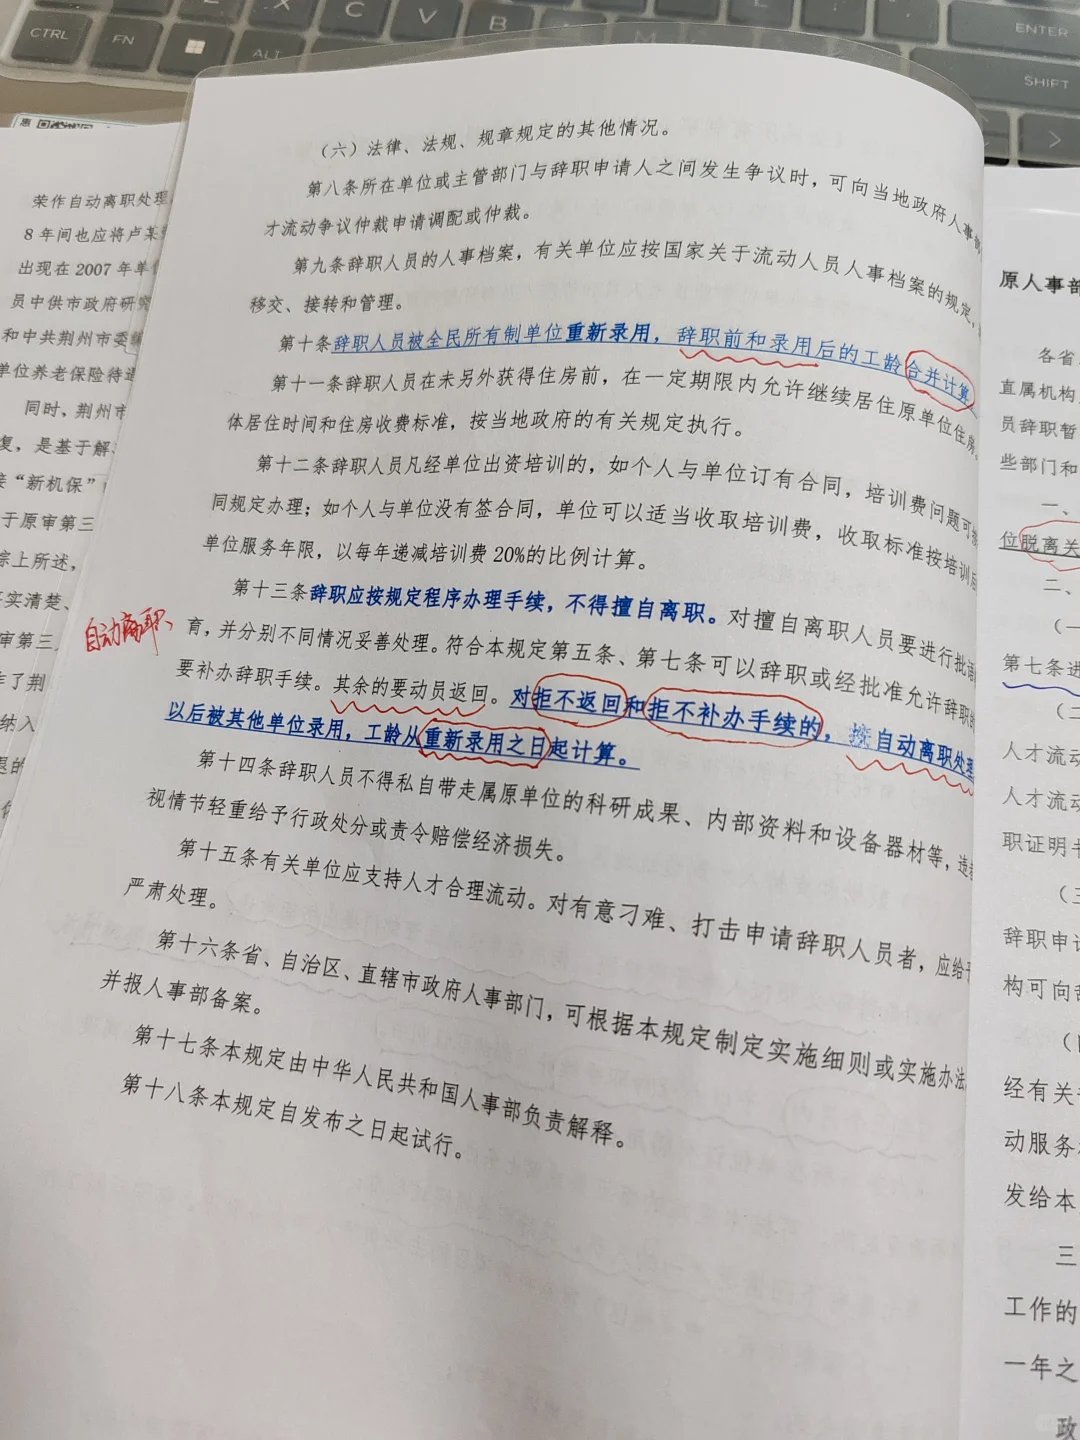 CTRL
FN
ALT
X
C
V
B
ENTER
SHIFT
荣作自动离职处理
8年间也应将卢某
出现在2007年单
员中供市政府研究
和中共荆州市委编
单位养老保险待遇
同时、荆州市
复，是基于解
“新机保”
于原审第三
综上所述，
事实清楚、
审第三
作了荆
纳入
（六）法律、法规、规章规定的其他情况。
第八条所在单位或主管部门与辞职申请人之间发生争议时，可向当地政府人事
才流动争议仲裁申请调配或仲裁。
第九条辞职人员的人事档案，有关单位应按国家关于流动人员人事档案的规定，
移交、接转和管理。
第十条辞职人员被全民所有制单位重新录用，辞职前和录用后的工龄合并计算
第十一条辞职人员在未另外获得住房前，在一定期限内允许继续居住原单位住房
体居住时间和住房收费标准，按当地政府的有关规定执行。
第十二条辞职人员凡经单位出资培训的，如个人与单位订有合同，培训费问题可按
同规定办理；如个人与单位没有签合同，单位可以适当收取培训费，收取标准按培训后
单位服务年限，以每年递减培训费20%的比例计算。
第十三条辞职应按规定程序办理手续，不得擅自离职。对擅自离职人员要进行批
自动离职
育，并分别不同情况妥善处理。符合本规定第五条、第七条可以辞职或经批准允许辞职的
要补办辞职手续。其余的要动员返回。对拒不返回和拒不补办手续的，按自动离职处理
以后被其他单位录用，工龄从重新录用之日起计算。
第十四条辞职人员不得私自带走属原单位的科研成果、内部资料和设备器材等，违者
视情节轻重给予行政处分或责令赔偿经济损失。
第十五条有关单位应支持人才合理流动。对有意刁难、打击申请辞职人员者，应给予
严肃处理。
第十六条省、自治区、直辖市政府人事部门，可根据本规定制定实施细则或实施办法
并报人事部备案。
第十七条本规定由中华人民共和国人事部负责解释。
第十八条本规定自发布之日起试行。
原人事部
各省
直属机构
员辞职暂
些部门和
一、
位脱离关
二、
（一
第七条进
（二
人才流动
人才流动
职证明书
（三
辞职申请
构可向
经有关
动服务
发给本
三
工作的
一年之
政